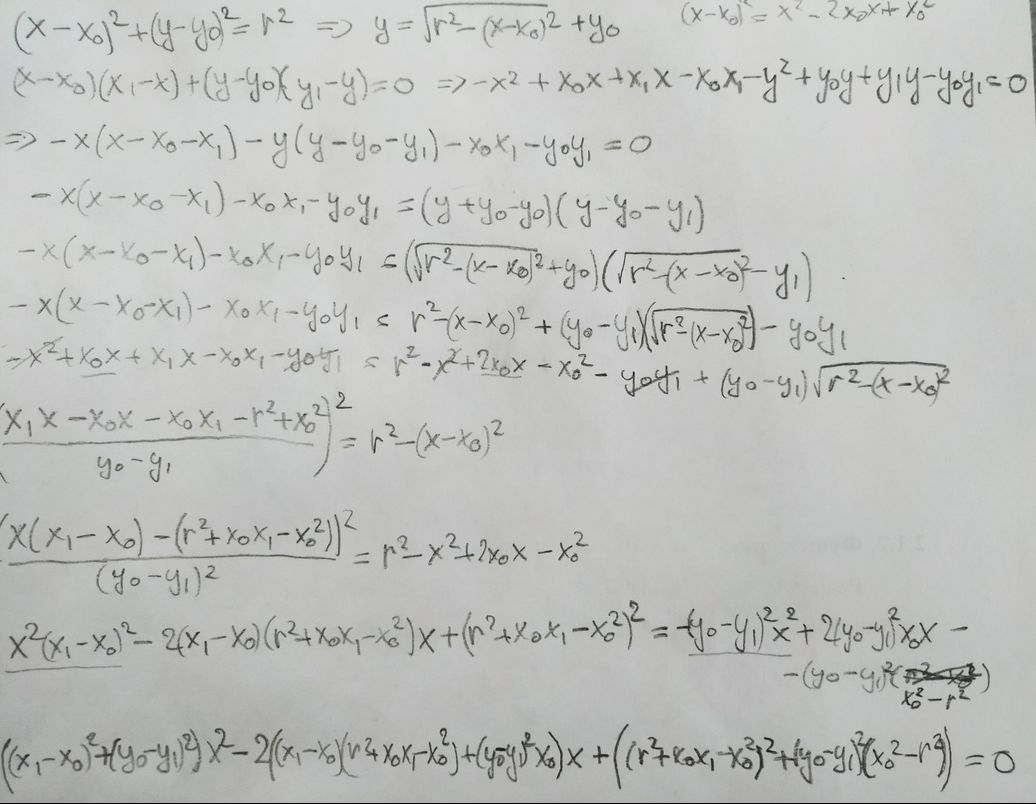 (x-x₀)²+(y-y₀)²=r² => y=√(r²-(x-x₀)²)+y₀
(x-x₀)²=x²-2x₀x+x₀²
(x-x₀)(x₁-x)+(y-y₀)(y₁-y)=0 => -x²+x₀x+x₁x-x₀x₁-y²+y₀y+y₁y-y₀y₁=0
=> -x(x-x₀-x₁)-y(y-y₀-y₁)-x₀x₁-y₀y₁=0
-x(x-x₀-x₁)-x₀x₁-y₀y₁=(y+y₀-y₀)(y-y₀-y₁)
-x(x-x₀-x₁)-x₀x₁-y₀y₁=(√(r²-(x-x₀)²)+y₀)(√(r²-(x-x₀)²)-y₁)
-x(x-x₀-x₁)-x₀x₁-y₀y₁=r²-(x-x₀)²+(y₀-y₁)(√(r²-(x-x₀)²))-y₀y₁
-x²+x₀x+x₁x-x₀x₁-y₀y₁=r²-x²+2x₀x-x₀²-y₀y₁+(y₀-y₁)√(r²-(x-x₀)²)
((x₁x-x₀x-x₀x₁-r²+x₀²)/(y₀-y₁))²=r²-(x-x₀)²
(x(x₁-x₀)-(r²+x₀x₁-x₀²))²/(y₀-y₁)²=r²-x²+2x₀x-x₀²
x²(x₁-x₀)²-2(x₁-x₀)(r²+x₀x₁-x₀²)x+(r²+x₀x₁-x₀²)²=-(y₀-y₁)²x²+2(y₀-y₁)²x₀x-
-(y₀-y₁)²(x₀²-r²)
((x₁-x₀)²+(y₀-y₁)²)x²-2((x₁-x₀)(r²+x₀x₁-x₀²)+(y₀-y₁)²x₀)x+((r²+x₀x₁-x₀²)²+(y₀-y₁)²(x₀²-r²))=0